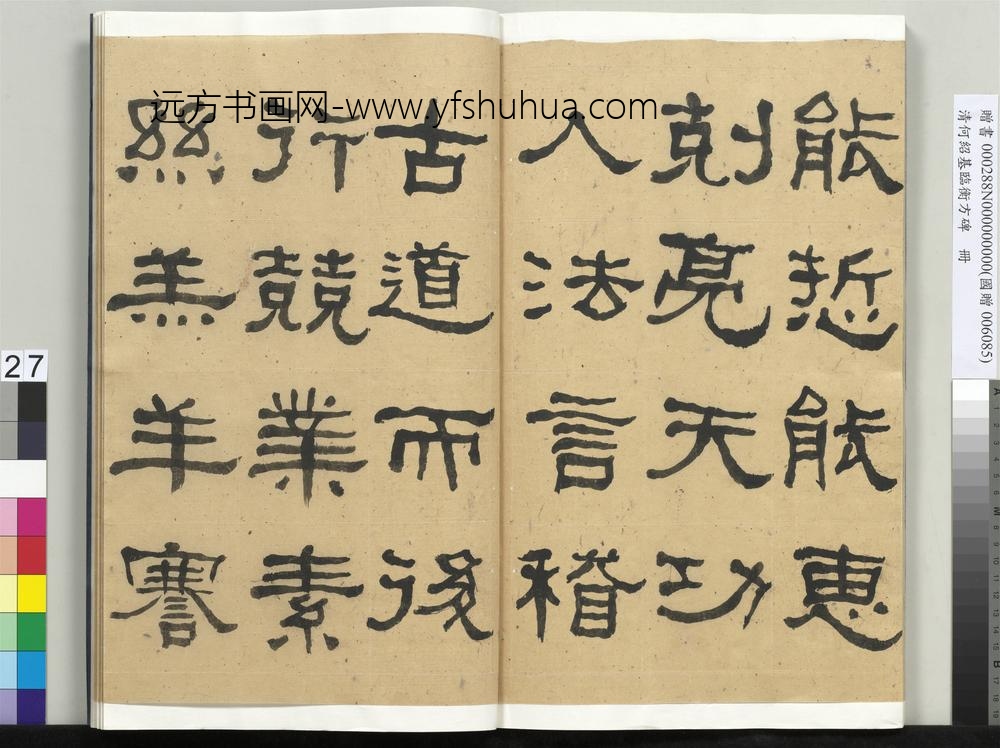 能悊能惠
剋亮天功
入法言稽
古道而後
行兢業素
絲羔羊謇
远方书画网-www.yfshuhua.com
贈書 000288N000000000(國贈 006085)
清何紹基臨衡方碑 冊
27